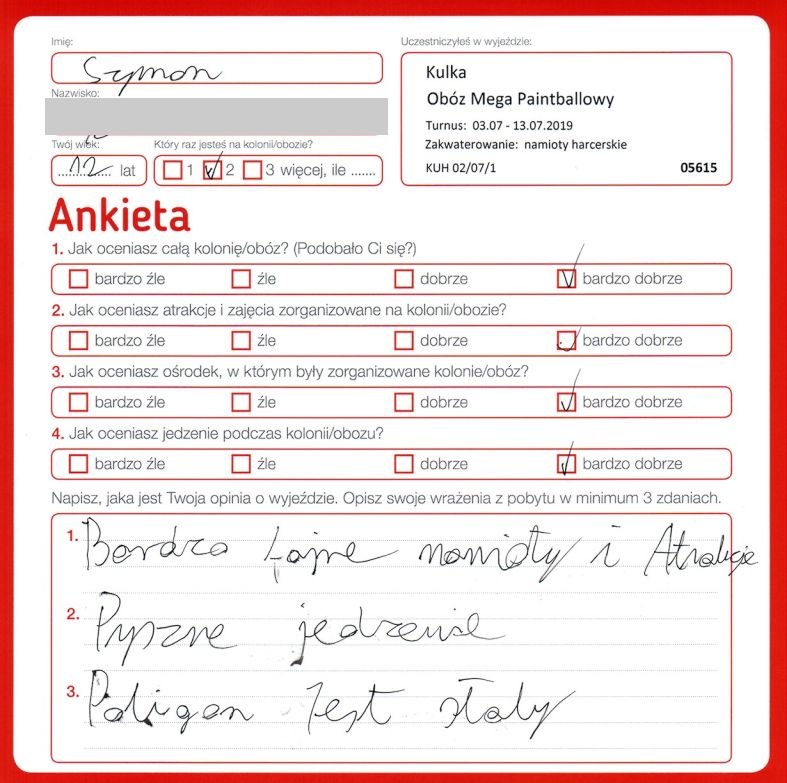 Imię:
Szymon
Nazwisko:
Twój wiek:
12 lat
Który raz jesteś na kolonii/obozie?
1 2 3 więcej, ile .......
Uczestniczyłeś w wyjeździe:
Kulka
Obóz Mega Paintballowy
Turnus: 03.07 - 13.07.2019
Zakwaterowanie: namioty harcerskie
KUH 02/07/1 05615
Ankieta
1. Jak oceniasz całą kolonię/obóz? (Podobało Ci się?)
bardzo źle źle dobrze bardzo dobrze
2. Jak oceniasz atrakcje i zajęcia zorganizowane na kolonii/obozie?
bardzo źle źle dobrze bardzo dobrze
3. Jak oceniasz ośrodek, w którym były zorganizowane kolonie/obóz?
bardzo źle źle dobrze bardzo dobrze
4. Jak oceniasz jedzenie podczas kolonii/obozu?
bardzo źle źle dobrze bardzo dobrze
Napisz, jaka jest Twoja opinia o wyjeździe. Opisz swoje wrażenia z pobytu w minimum 3 zdaniach.
1. Bardzo fajne namioty i Atrakcje
2. Pyszne jedzenie
3. Poligon Jest